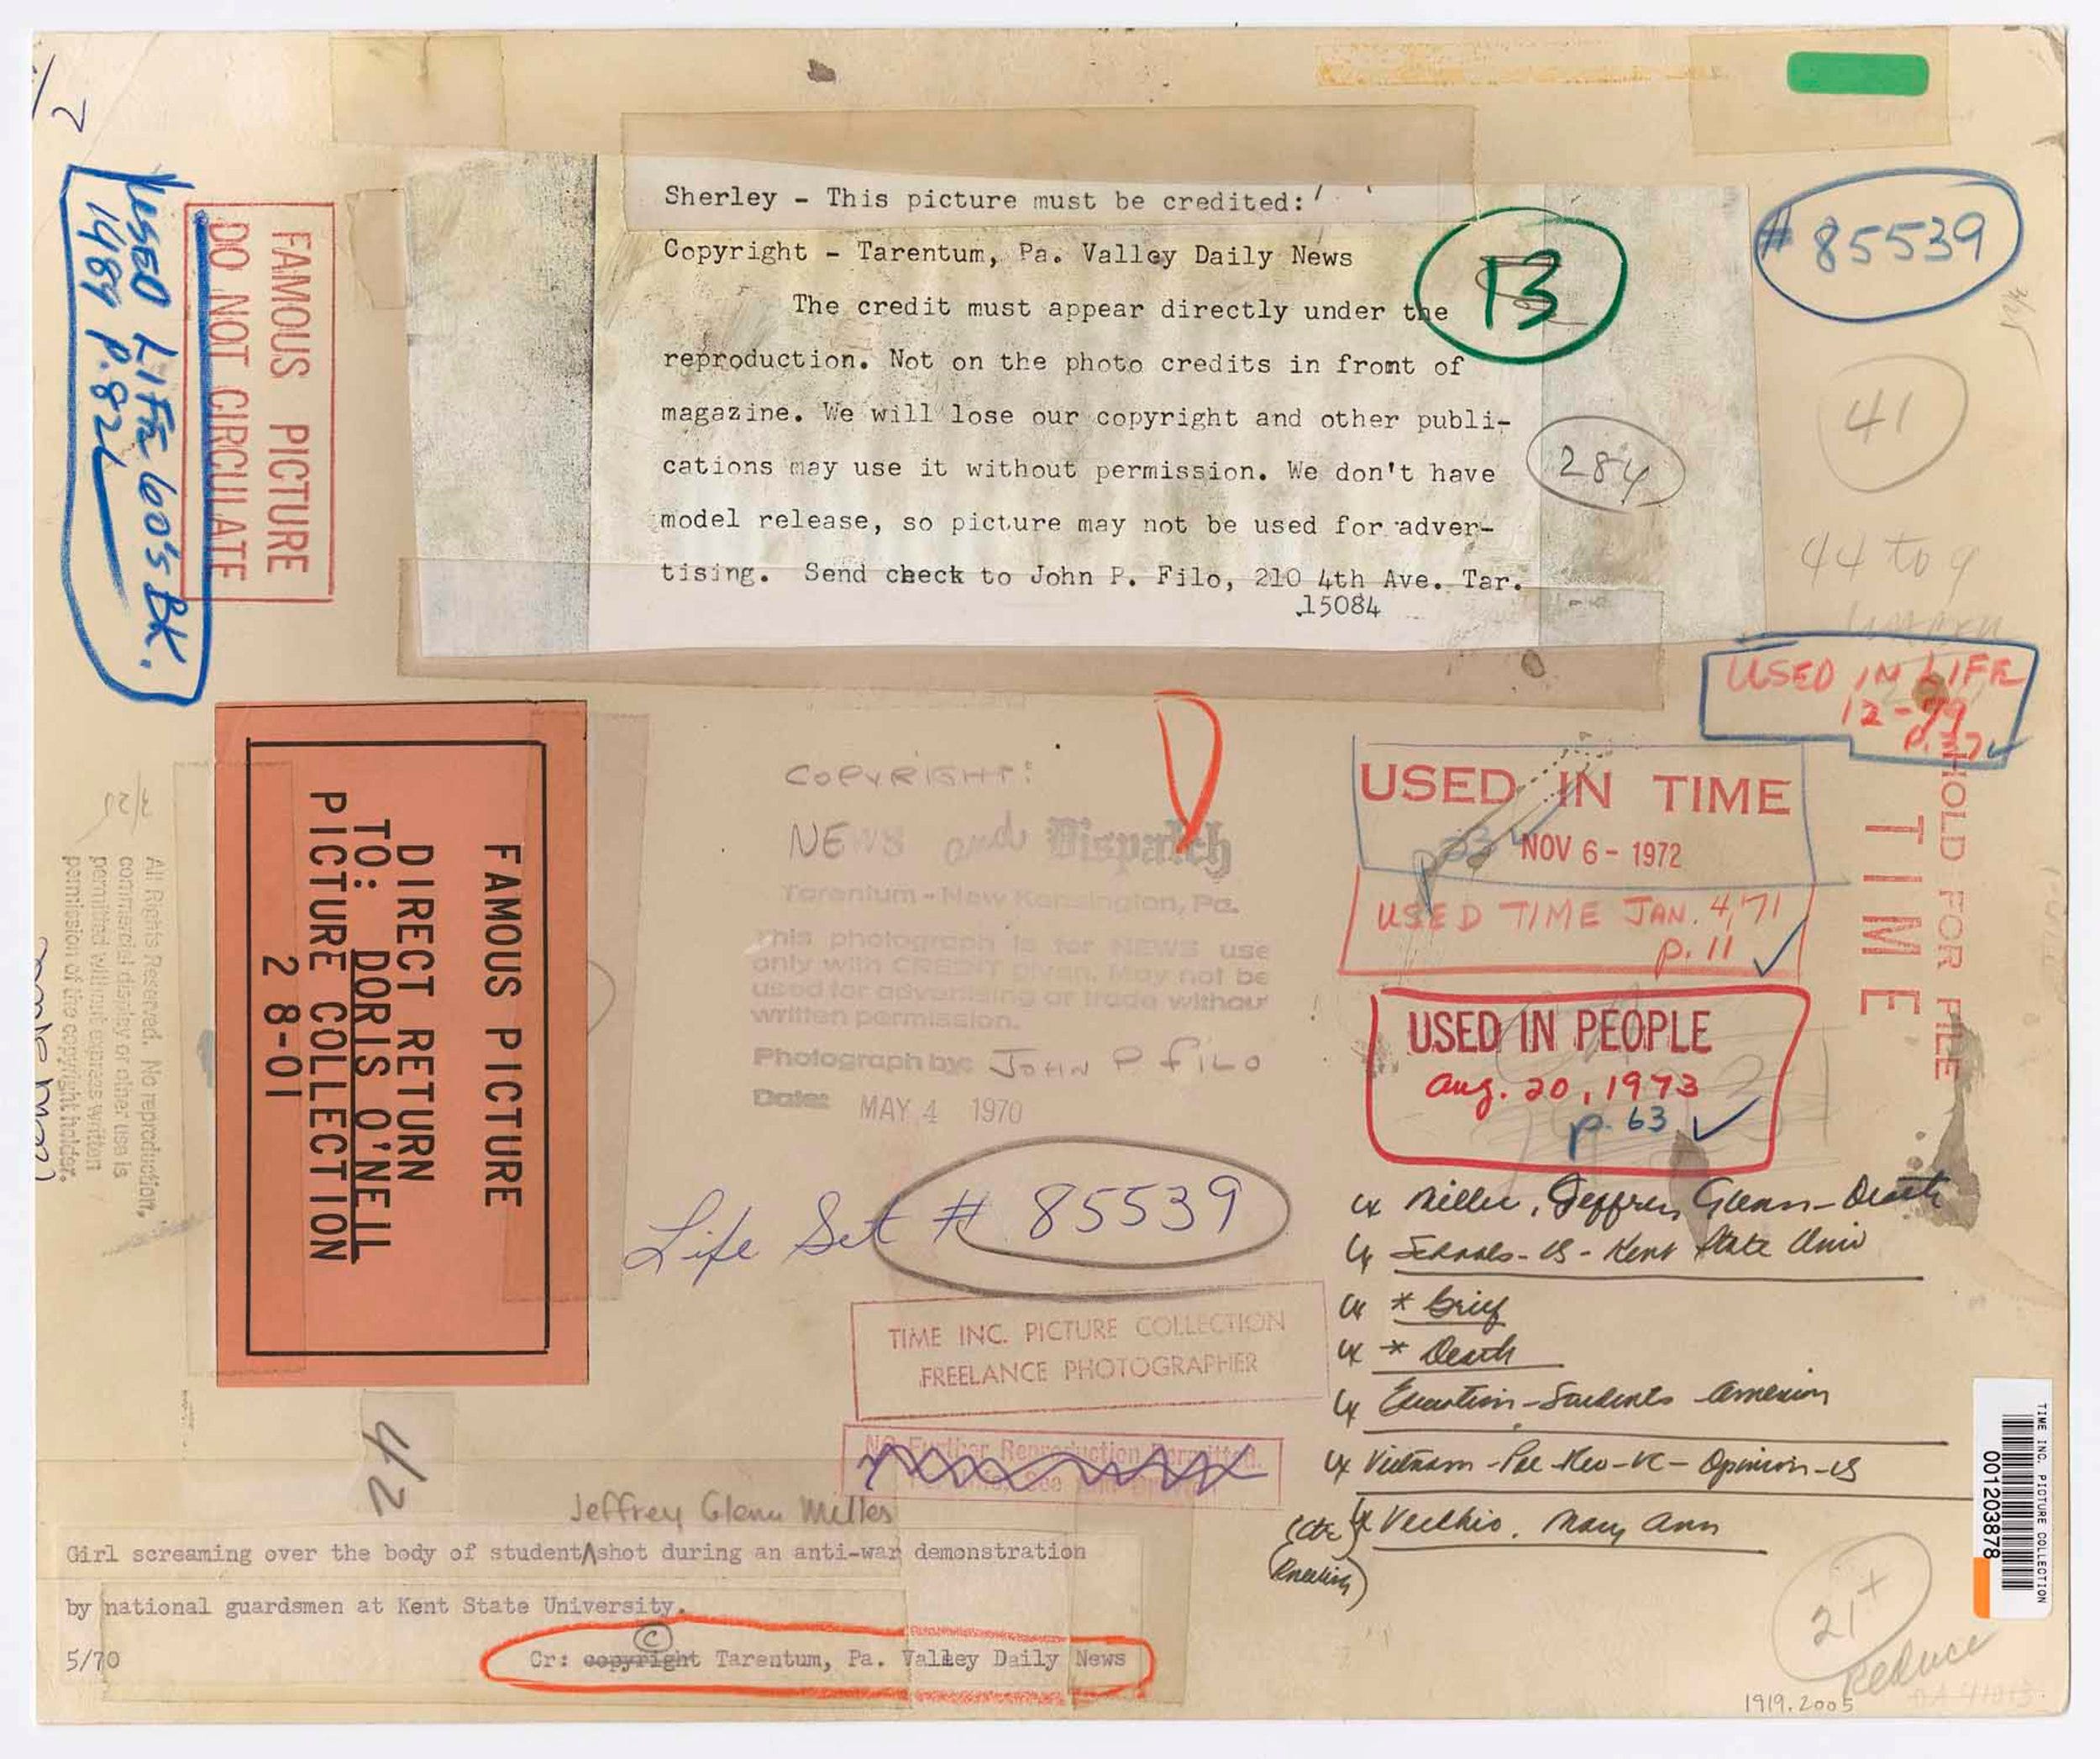 Sherley - This picture must be credited:
Copyright - Tarentum, Pa. Valley Daily News
The credit must appear directly under the
reproduction. Not on the photo credits in fromt of
magazine. We will lose our copyright and other publi-
cations may use it without permission. We don't have
model release, so picture may not be used for adver-
tising. Send check to John P. Filo, 210 4th Ave. Tar.
15084
13
284
# 85539
41
44 to 9
USED LIFE 60's BK.
1989 P.82
FAMOUS PICTURE
DO NOT CIRCULATE
USED IN LIFE
12-99
USED IN TIME
NOV 6 - 1972
USED TIME JAN. 4, 71
p. 11
USED IN PEOPLE
Aug. 20, 1973
p. 63
HOLD FOR FILE
TIME
FAMOUS PICTURE
DIRECT RETURN
TO: DORIS O'NEIL
PICTURE COLLECTION
28-01
All Rights Reserved. No reproduction,
commercial display or other use is
permitted without express written
permission of the copyright holder.
COPYRIGHT:
NEWS and Dispatch
Tarentum - New Kensington, Pa.
This photograph is for NEWS use
only with CREDIT given. May not be
used for advertising or trade without
written permission.
Photograph by: JOHN P FILO
Date: MAY 4 1970
Life Set # 85539
TIME INC. PICTURE COLLECTION
FREELANCE PHOTOGRAPHER
No Further Reproduction Permitted.
Miller, Jeffrey Glenn - Death
Schools - US - Kent State Univ
* Grief
* Death
Vietnam
Opinion - US
Vecchio, Mary Ann
42
Jeffrey Glenn Miller
Girl screaming over the body of student shot during an anti-war demonstration
by national guardsmen at Kent State University.
5/70
Cr: copyright © Tarentum, Pa. Valley Daily News
TIME INC. PICTURE COLLECTION
001203878
21+
Reduce
1919.2005